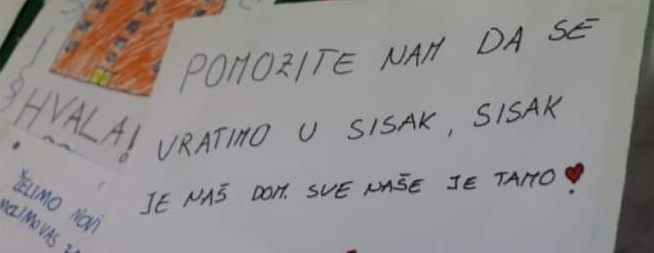 POMOZITE NAM DA SE
VRATIMO U SISAK, SISAK
JE NAŠ DOM. SVE NAŠE JE TAMO
HVALA!
ŽELIMO NOVI
MOLIMO VAS ZA